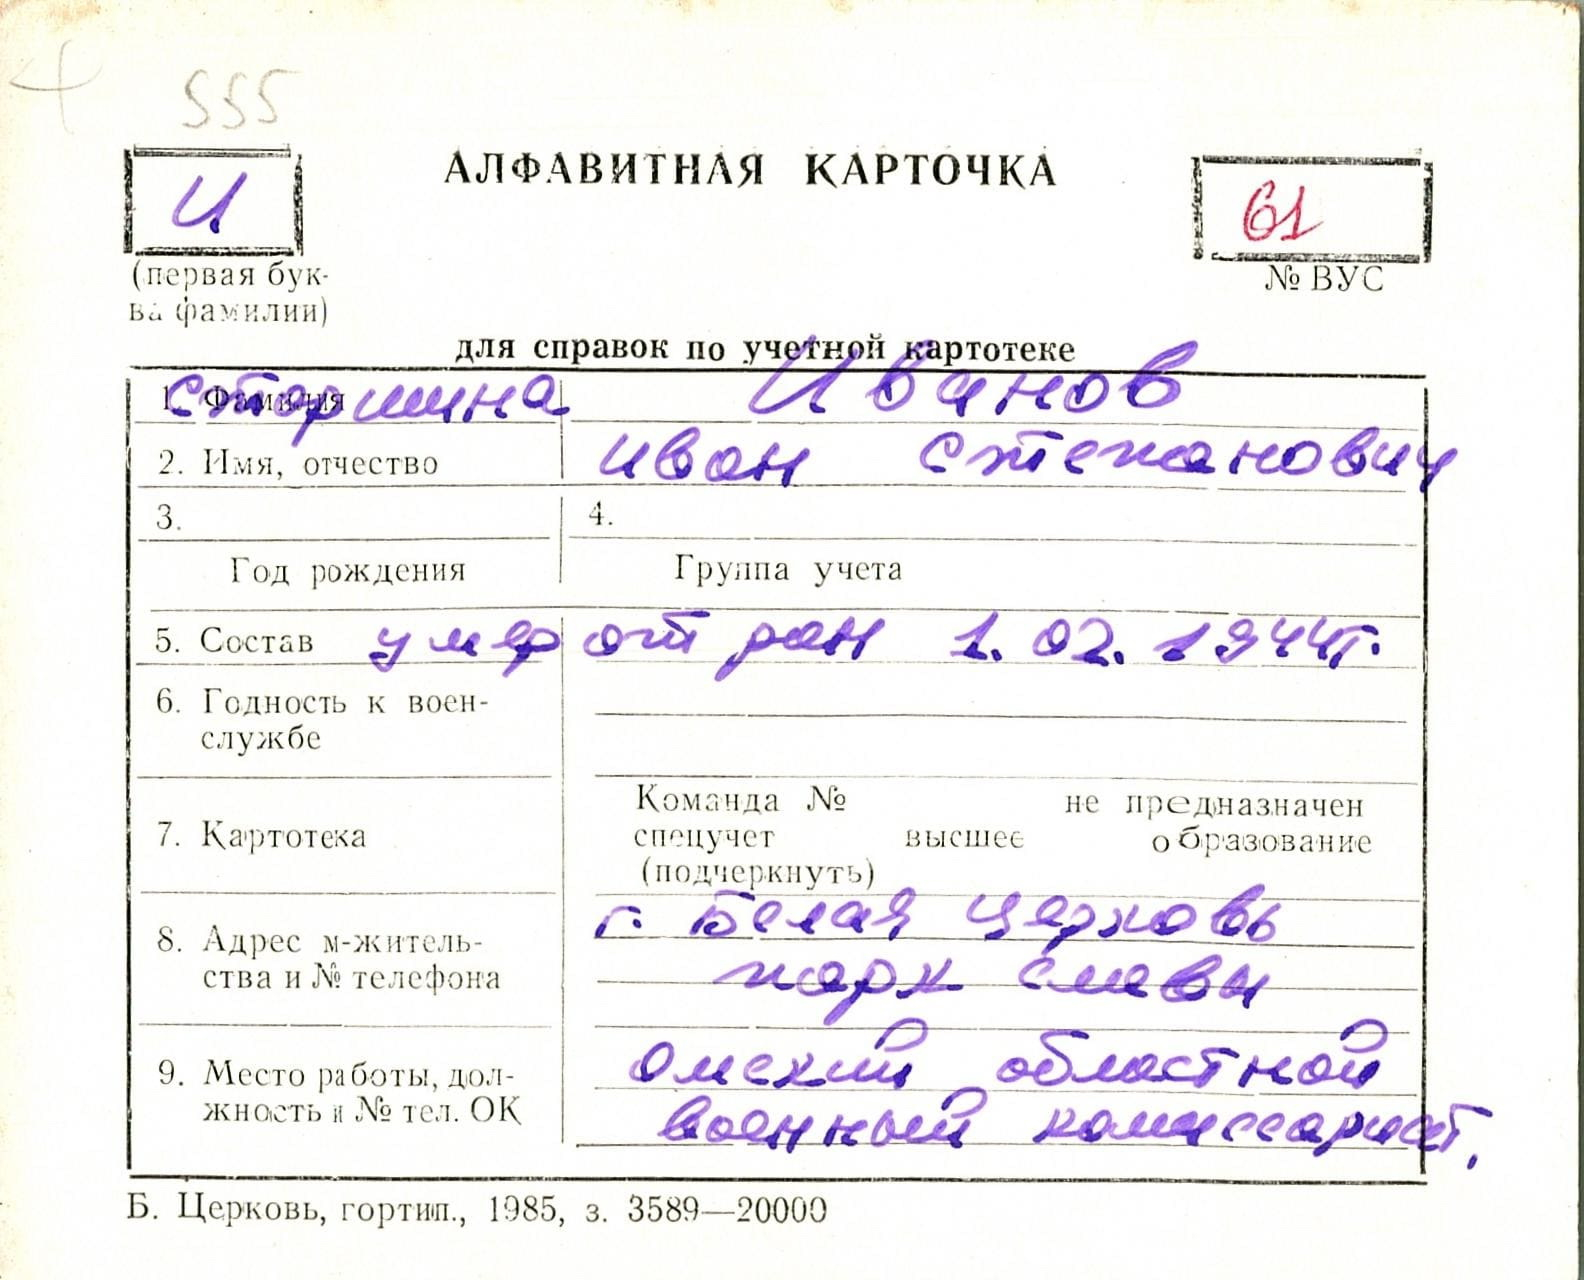 555
И
АЛФАВИТНАЯ КАРТОЧКА
61
(первая бук-
ва фамилии)
№ ВУС
для справок по учетной картотеке
1. Фамилия
старшина
Иванов
2. Имя, отчество
Иван Степанович
3.
4.
Год рождения
Группа учета
5. Состав
умер от ран 1.02.1944г.
6. Годность к воен-
службе
7. Картотека
Команда № не предназначен
спецучет высшее образование
(подчеркнуть)
8. Адрес м-житель-
ства и № телефона
г. Белая Церковь
парк Славы
9. Место работы, дол-
жность и № тел. ОК
Омский областной
военный комиссариат.
Б. Церковь, гортип., 1985, з. 3589—20000